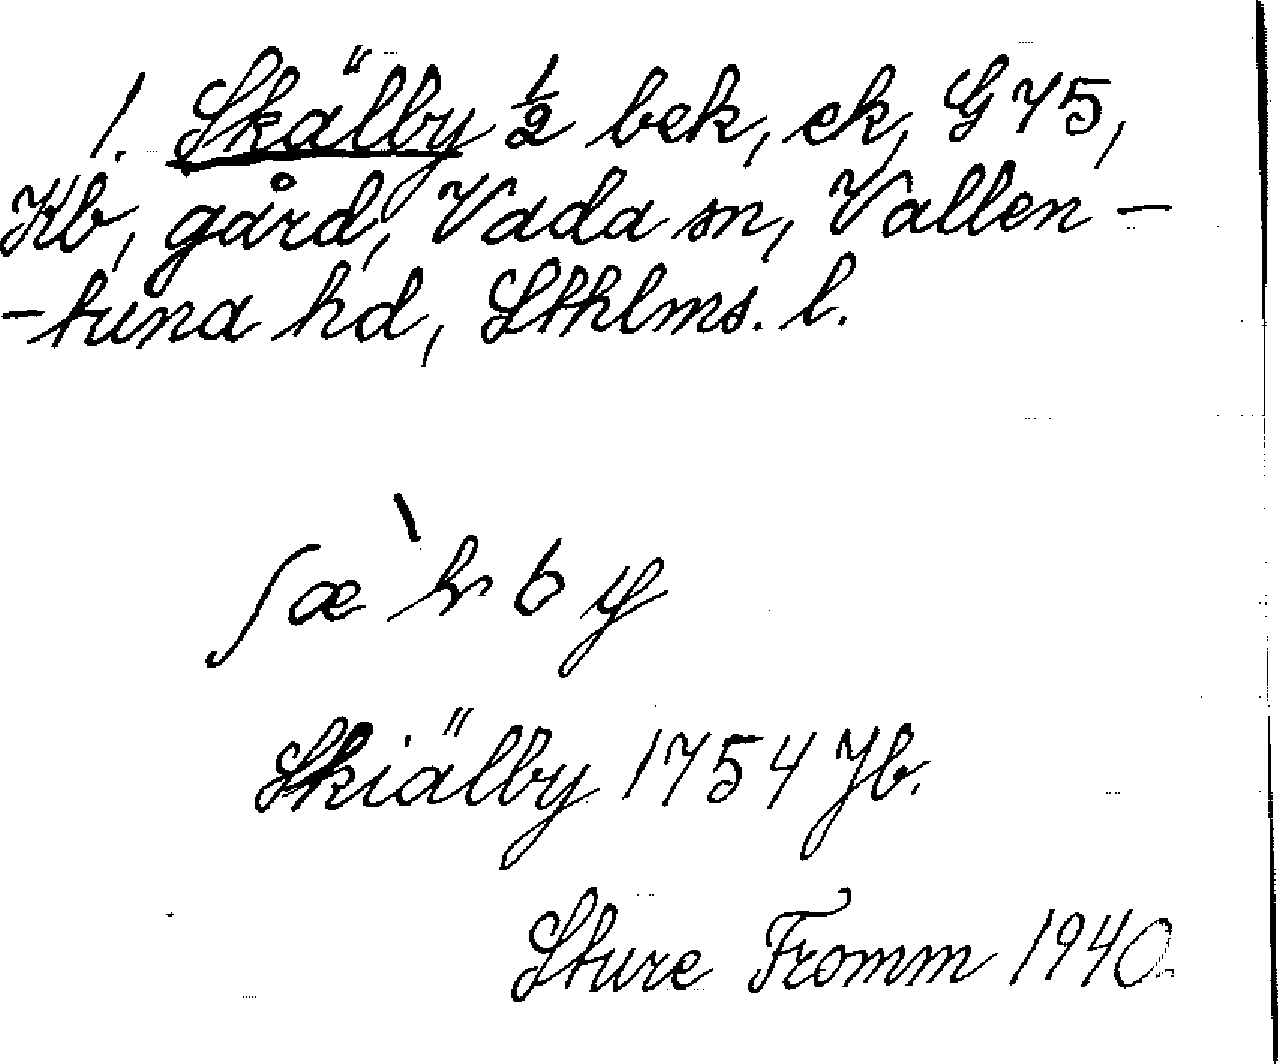 1. Skälby ½ bek, ek, G 75,
Kb, gård, Vada sn, Vallen-
-tuna hd, Sthlms. l.
Skiälby 1754 Jb.
Sture Fromm 1940